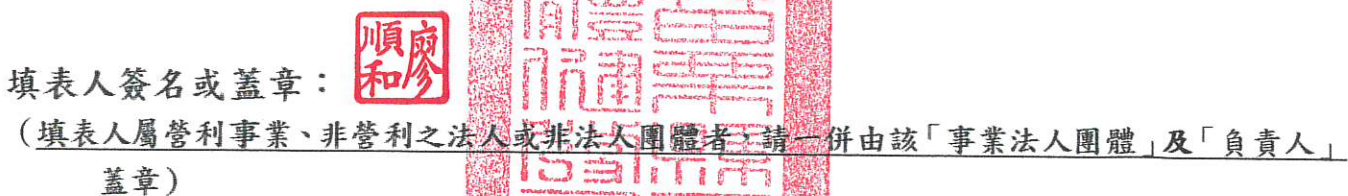 填表人簽名或蓋章：
廖順和
（填表人屬營利事業、非營利之法人或非法人團體者，請一併由該「事業法人團體」及「負責人」
蓋章）